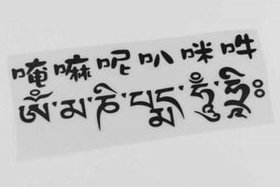 唵嘛呢叭咪吽
ཨོཾ་མ་ཎི་པདྨ་ཧཱུྃ་ཧྲཱིཿ